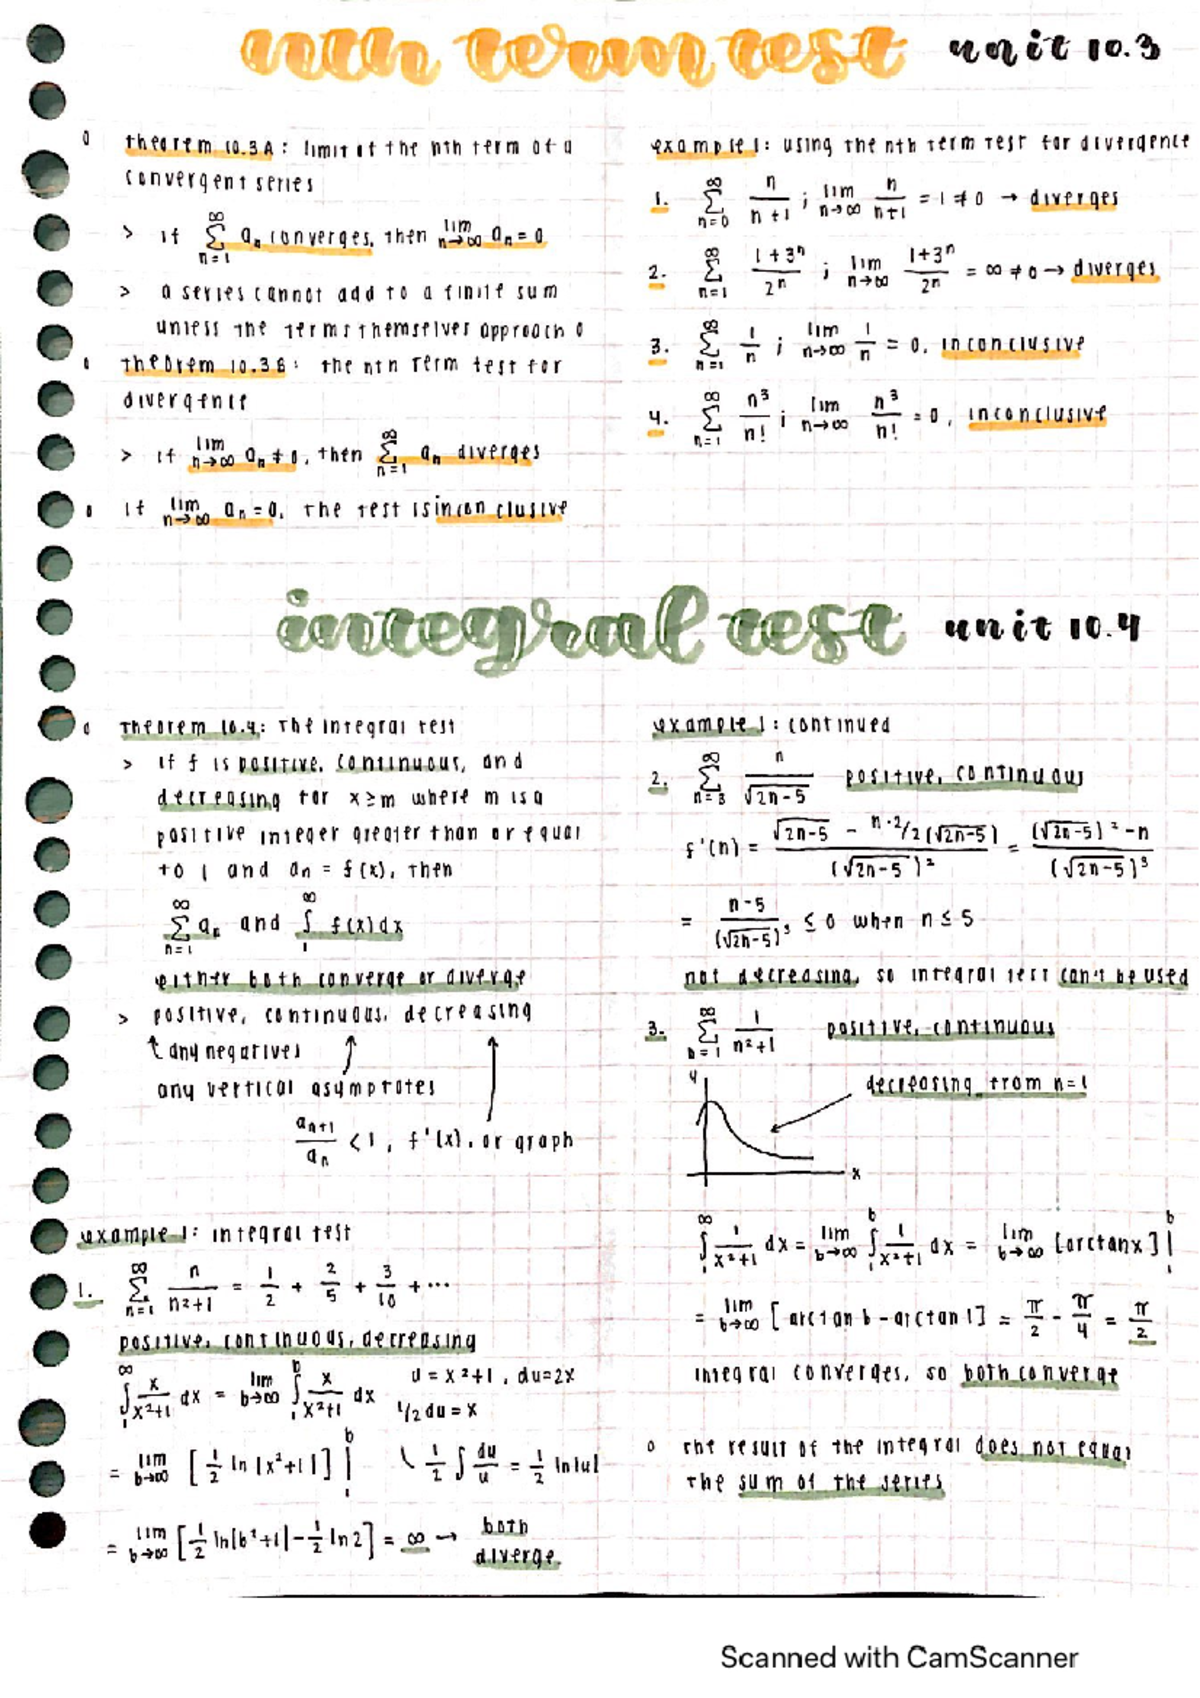 nth term test unit 10.3
theorem 10.3A: limit of the nth term of a
convergent series
> if ∞Σn=1 aₙ converges, then lim n→∞ aₙ = 0
> a series cannot add to a finite sum
unless the terms themselves approach 0
theorem 10.3B: the nth term test for
divergence
> if lim n→∞ aₙ ≠ 0, then ∞Σn=1 aₙ diverges
if lim n→∞ aₙ = 0, the test is inconclusive
example 1: using the nth term test for divergence
1. ∞Σn=0 n/(n+1) ; lim n→∞ n/(n+1) = 1 ≠ 0 → diverges
2. ∞Σn=1 (1+3ⁿ)/2ⁿ ; lim n→∞ (1+3ⁿ)/2ⁿ = ∞ ≠ 0 → diverges
3. ∞Σn=1 1/n ; lim n→∞ 1/n = 0, inconclusive
4. ∞Σn=1 n³/n! ; lim n→∞ n³/n! = 0, inconclusive
integral test unit 10.4
Theorem 10.4: The integral test
> if f is positive, continuous, and
decreasing for x ≥ m where m is a
positive integer greater than or equal
to 1 and aₙ = f(x), then
∞Σn=1 aₙ and ∞∫1 f(x)dx
either both converge or diverge
> positive, continuous, decreasing
↑ any negatives
any vertical asymptotes
aₙ₊₁/aₙ < 1, f'(x), or graph
example 1: integral test
1. ∞Σn=1 n/(n²+1) = 1/2 + 2/5 + 3/10 + ...
positive, continuous, decreasing
∞∫1 x/(x²+1) dx = lim b→∞ b∫1 x/(x²+1) dx u = x²+1, du=2x
1/2 du = x
= lim b→∞ [1/2 ln|x²+1|] |b 1 ( 1/2 ∫ du/u = 1/2 ln|u|
= lim b→∞ [1/2 ln|b²+1| - 1/2 ln 2] = ∞ → both
diverge.
example 1: continued
2. ∞Σn=3 n/√(2n-5) positive, continuous
f'(n) = (√(2n-5) - n·2/2(√(2n-5)))/(√(2n-5))² = ((√(2n-5))² - n)/(√(2n-5))³
= (n-5)/(√(2n-5))³ ≤ 0 when n ≤ 5
not decreasing, so integral test can't be used
3. ∞Σn=1 1/(n²+1) positive, continuous
y
decreasing from n=1
x
∞∫1 1/(x²+1) dx = lim b→∞ b∫1 1/(x²+1) dx = lim b→∞ [arctanx] |b 1
= lim b→∞ [arctan b - arctan 1] = π/2 - π/4 = π/2
integral converges, so both converge
the result of the integral does not equal
the sum of the series
Scanned with CamScanner